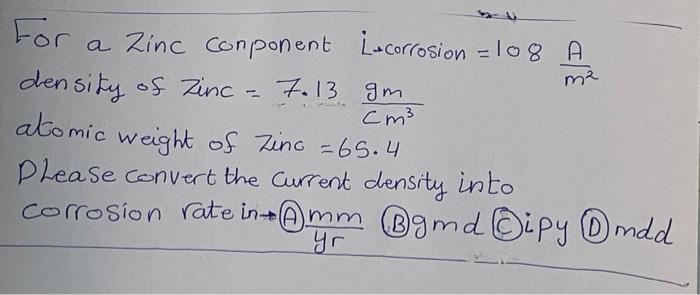 For a Zinc conponent i→corrosion = 108 A/m²
density of Zinc = 7.13 gm/cm³
atomic weight of Zinc = 65.4
Please convert the current density into
corrosion rate in→ Ⓐ mm/yr Ⓑ gmd Ⓒ ipy Ⓓ mdd